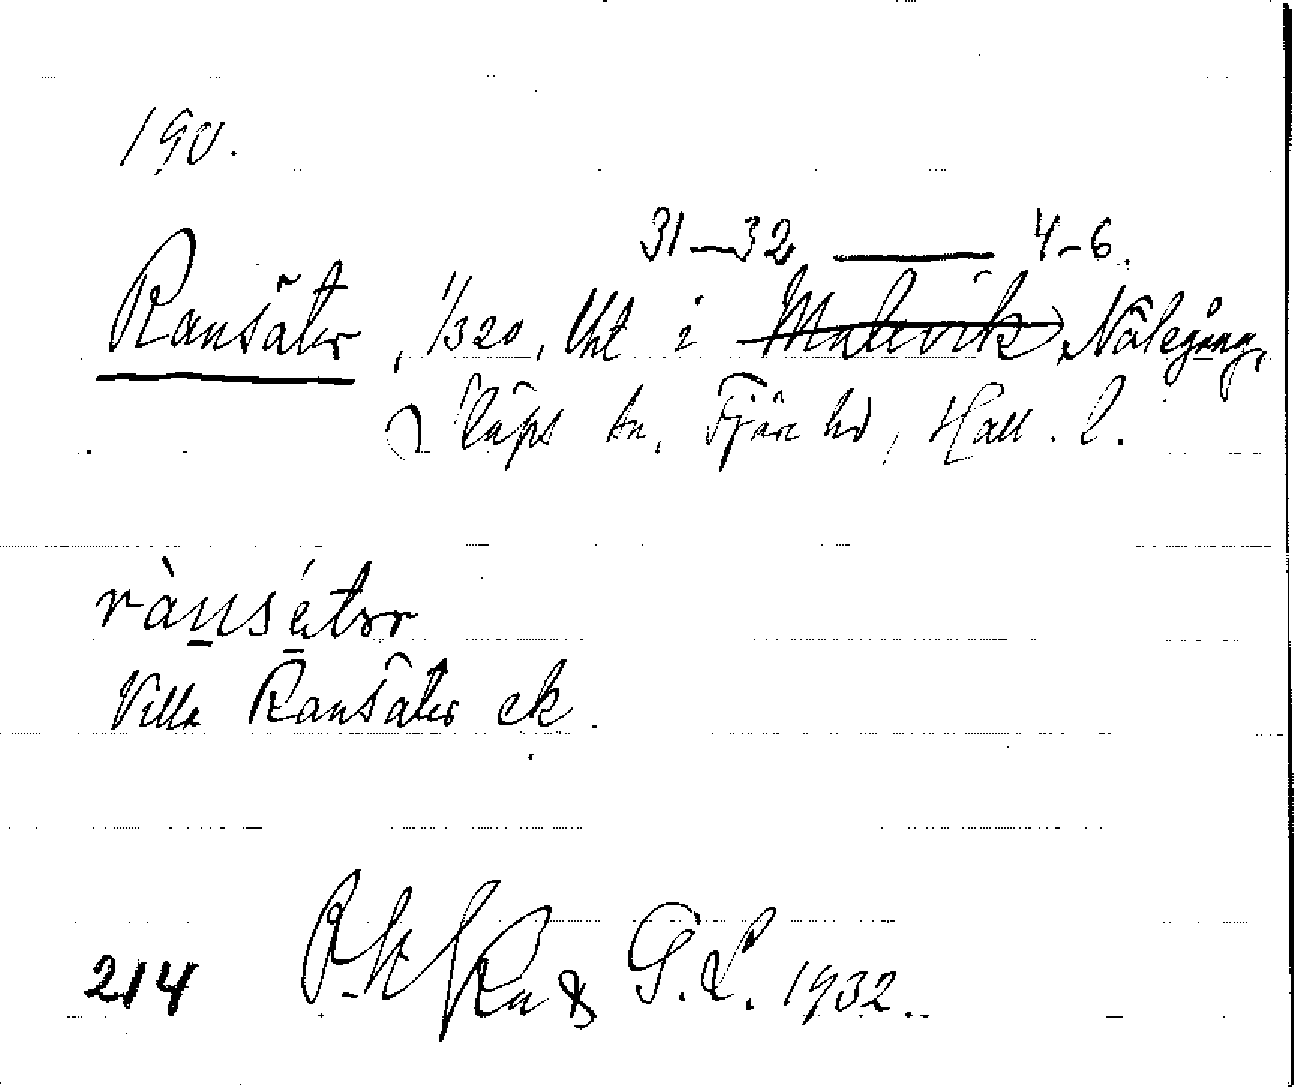 190.
31–32 —— 4–6.
Ransäter, 1/320, lht i Malevik, Nålegång,
Släps sn, Fjäre hd, Hall. l.
rànsétər
Villa Ransäter ek.
214 G. L. 1932.